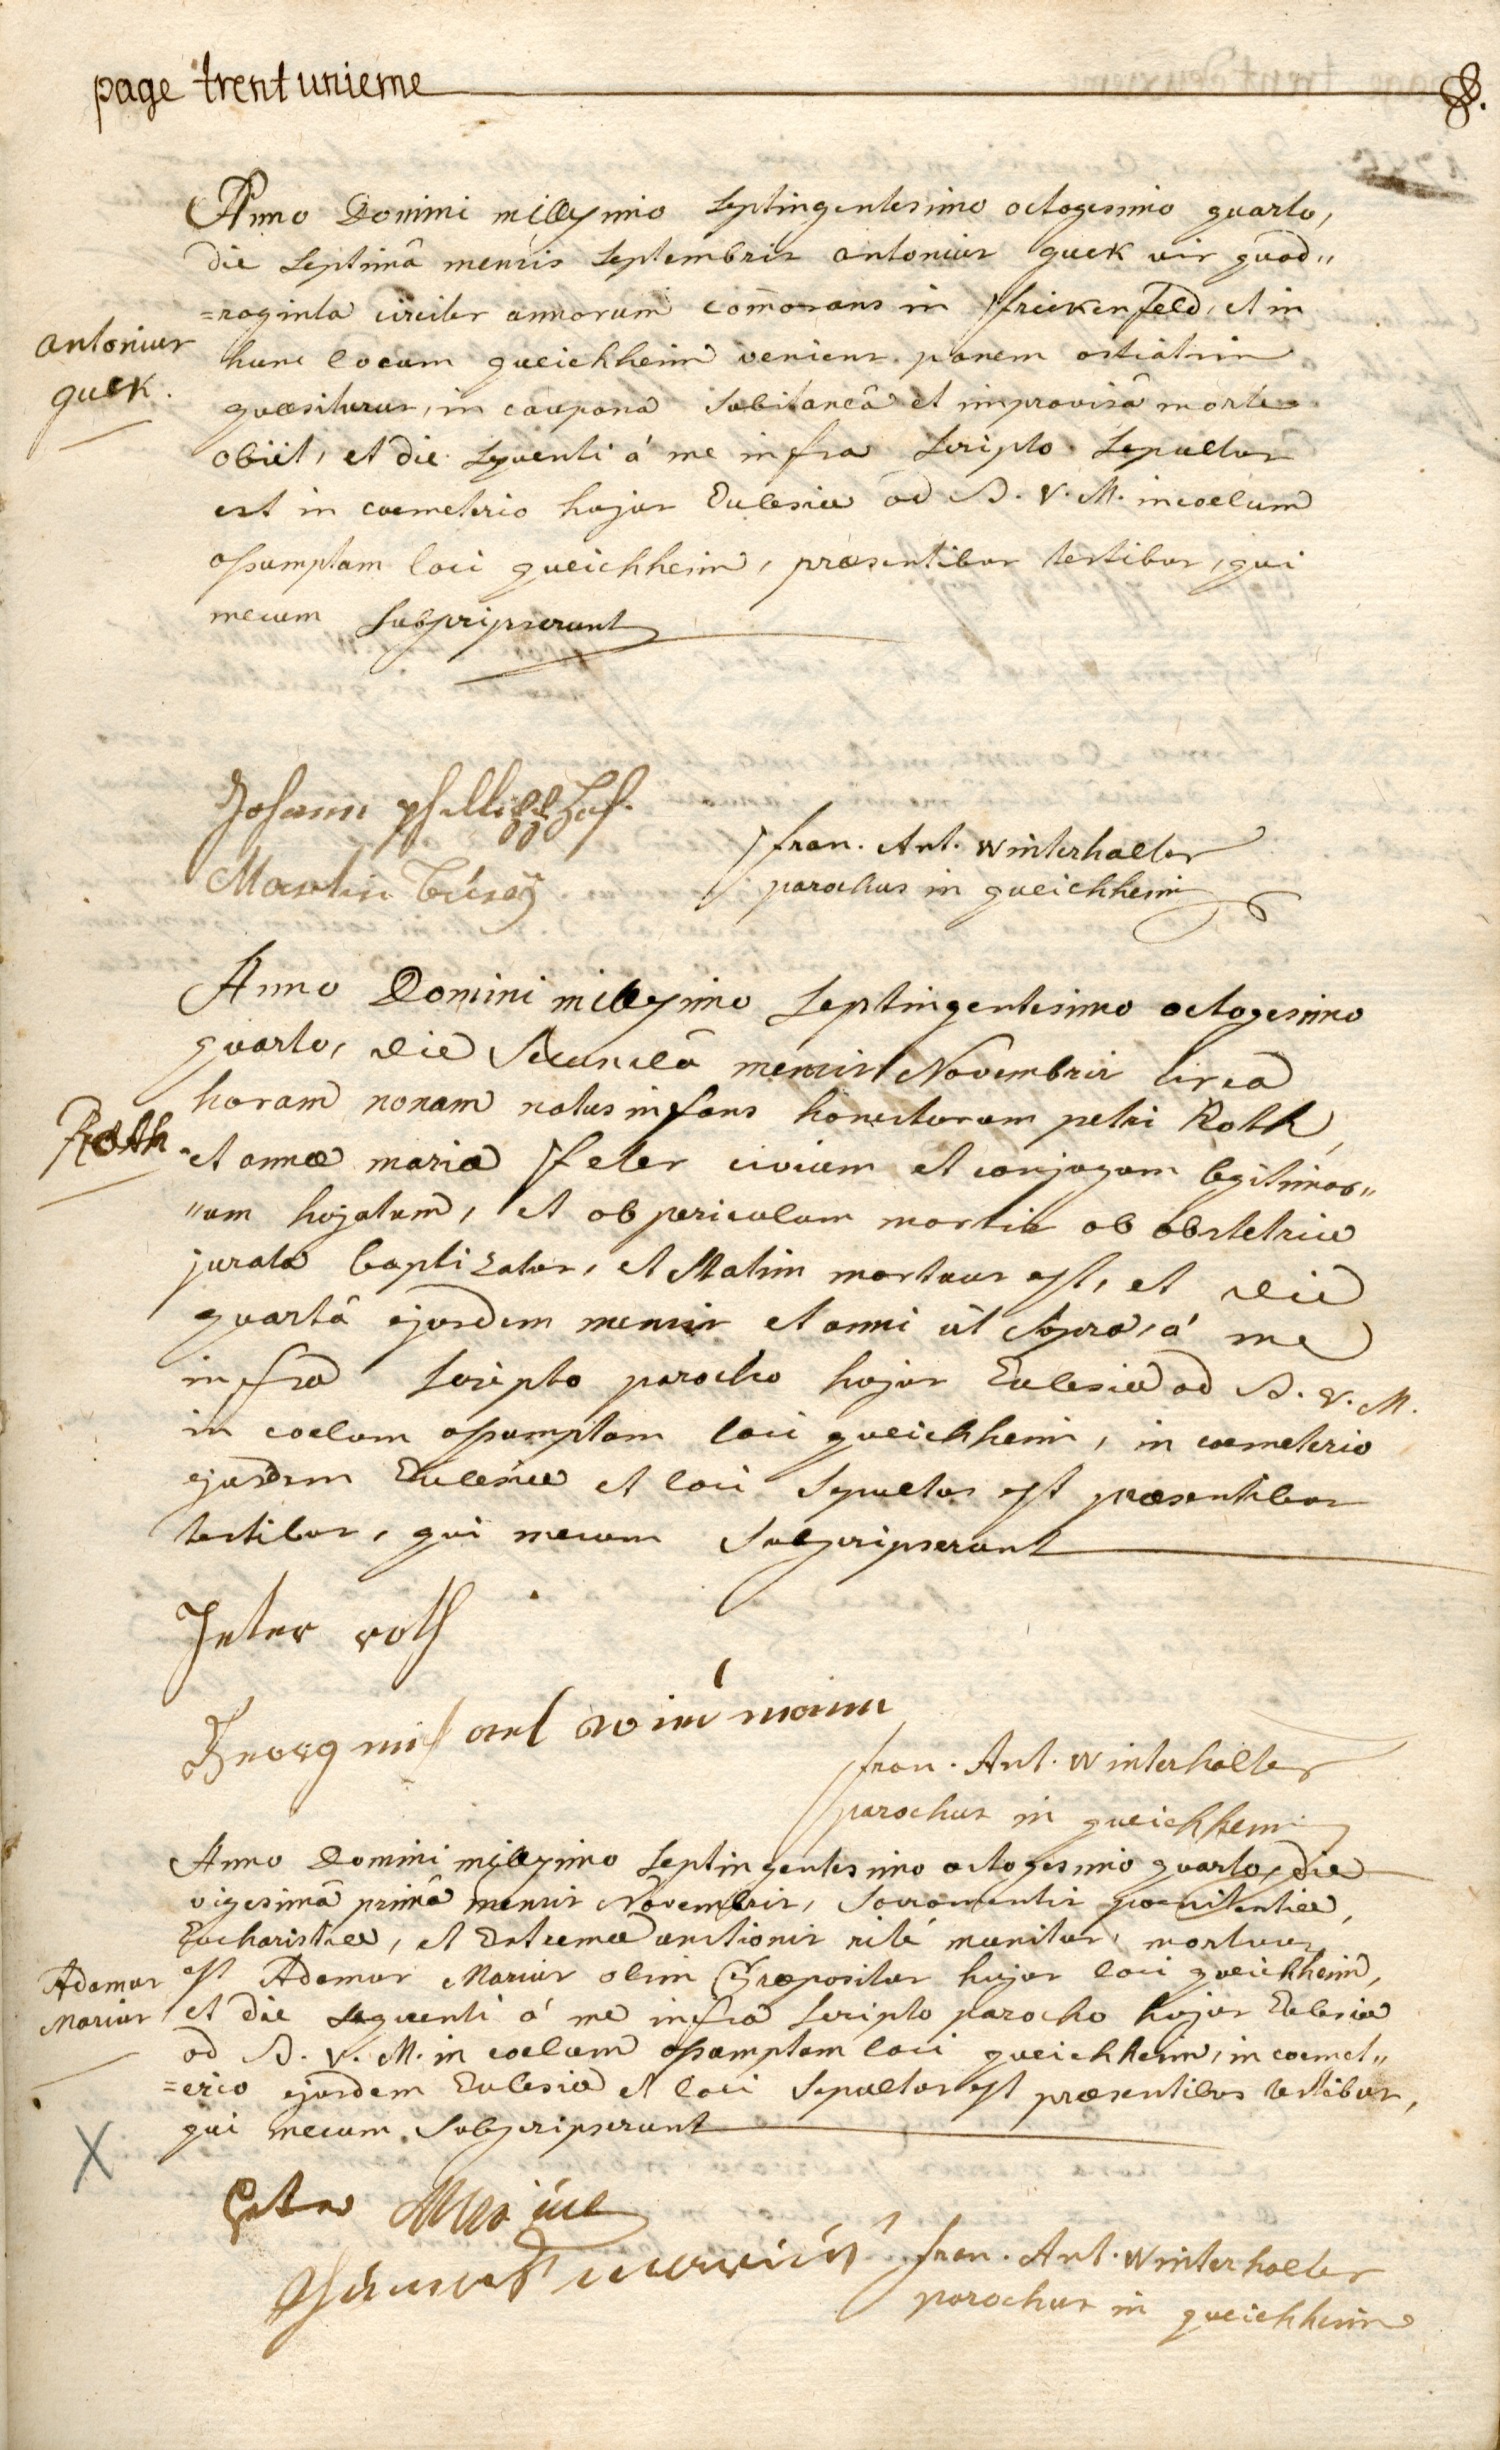 page trentunieme
Anno Domini millesimo septingentesimo octogesimo quarto,
die septimâ mensis septembris antonius quek vir quad"
=raginta circiter annorum com̄orans in frickenfeld, et in
antonius
hunc locum queichheim veniens panem ostiatim
quek.
quaesiturus, in caupona subitaneâ et improvisâ morte
obiit, et die sequenti á me infra scripto sepultus
est in coemeterio hujus Eclesiae ad B. V. M. in coelum
assumptam loci queichheim, praesentibus testibus, qui
mecum subscripserunt
Johann phillipp
Martin
fran. Ant. Winterhalter
parochus in queichheim
Anno Domini millesimo septingentesimo octogesimo
quarto, die secundâ mensis Novembris circa
horam nonam natus infans honestorum petri Roth,
Roth
et annae mariae feter civium et conjugum legitimor"
"um hujatum, et ob periculum mortis ab obstetrice
jurata baptizatus, et statim mortuus est, et die
quartâ ejusdem mensis et anni ut supra, á me
infra scripto parocho hujus Eclesiae ad B. V. M.
in coelum assumptam loci queichheim, in coemeterio
ejusdem Eclesiae et loci sepultus est praesentibus
testibus, qui mecum subscripserunt
Peter roth
Georg michael
fran. Ant. Winterhalter
parochus in queichheim
Anno Domini millesimo septingentesimo octogesimo quarto, die
vigesimâ primâ mensis Novembris, sacramentis poenitentiae,
Eucharistiae, et Extremae unctionis rité munitus, mortuus
Adamus
est Adamus Marius olim Praepositus hujus loci queichheim,
Marius
et die sequenti á me infra scripto parocho hujus Eclesiae
ad B. V. M. in coelum assumptam loci queichheim, in coemet"
=erio ejusdem Eclesiae et loci sepultus est praesentibus testibus,
qui mecum subscripserunt
X
Peter
fran. Ant. Winterhalter
parochus in queichheim